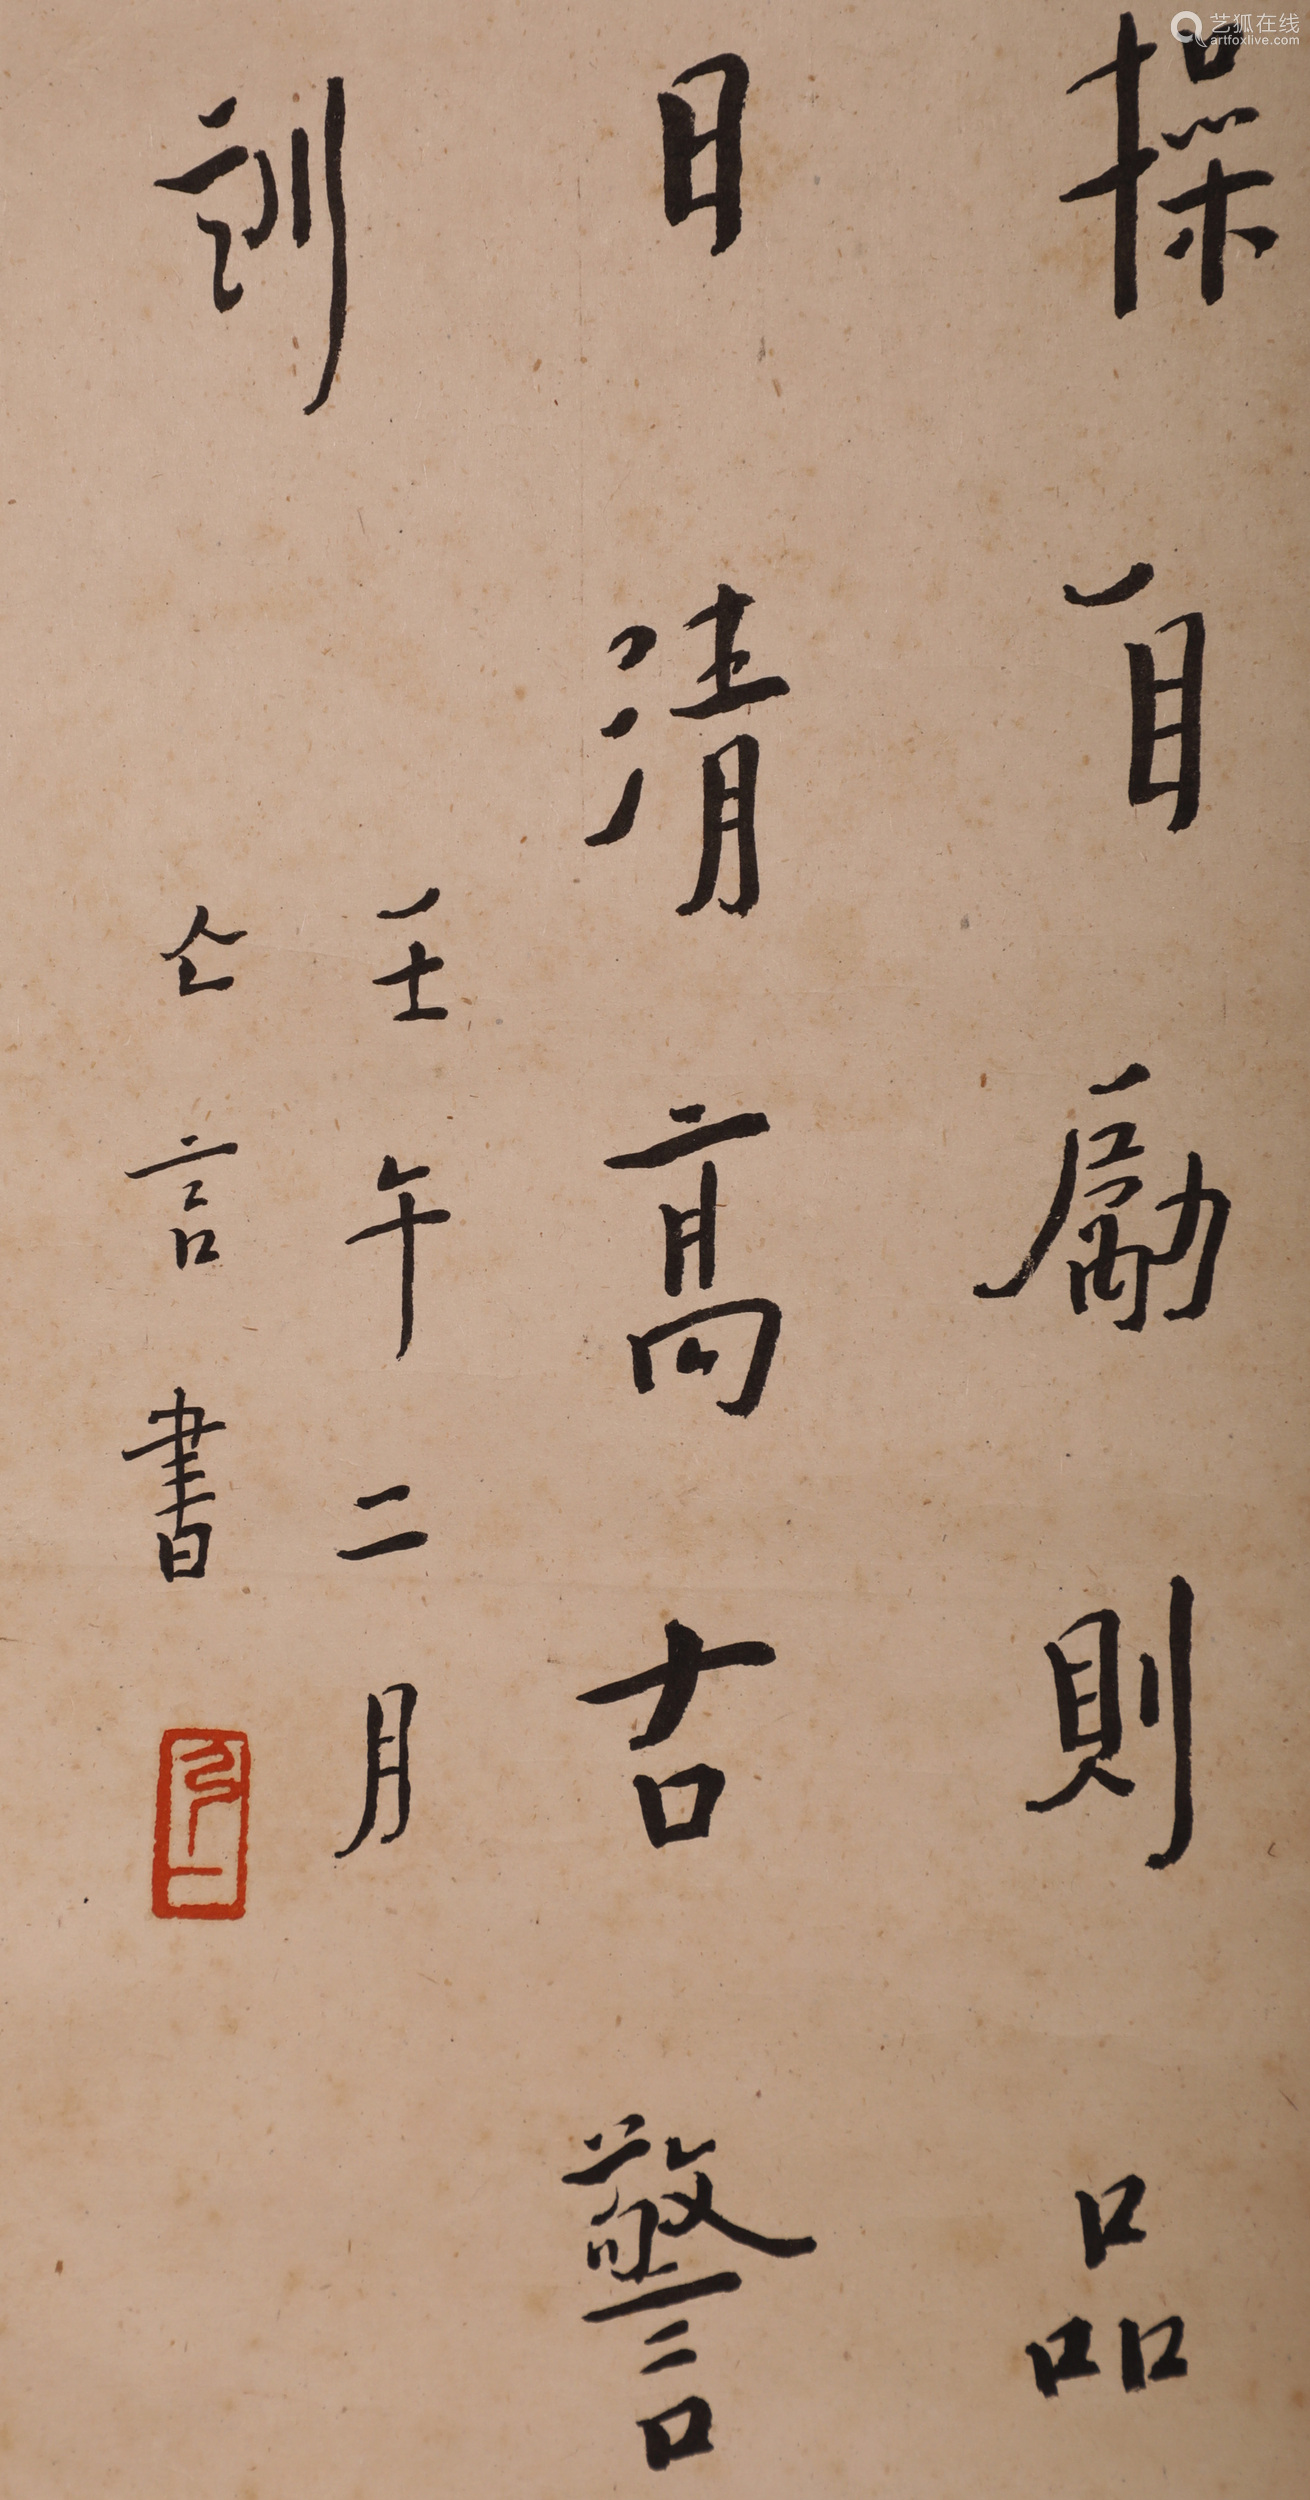 操自勵則品
日清高古警
訓
壬午二月
亼言書
艺狐在线
artfoxlive.com